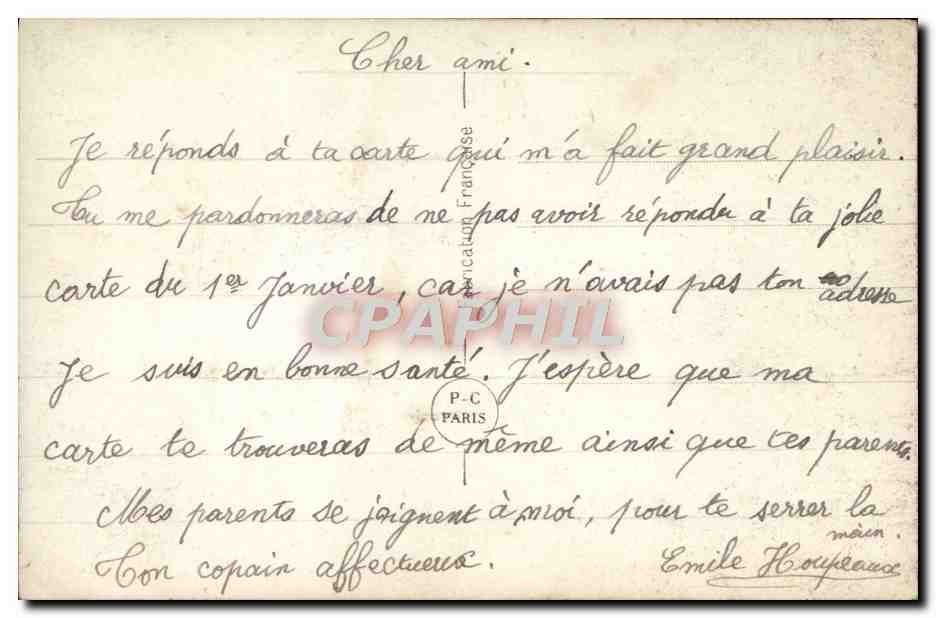 Cher ami.
Je réponds à ta carte qui m'a fait grand plaisir.
Tu me pardonneras de ne pas avoir répondu à ta jolie
carte du 1er Janvier, car je n'avais pas ton adresse
Je suis en bonne santé. J'espère que ma
carte te trouveras de même ainsi que tes parents.
Mes parents se joignent à moi, pour te serrer la
main.
Ton copain affectueux. Emile Houpeaux
Fabrication Française
CPAPHIL
P-C
PARIS